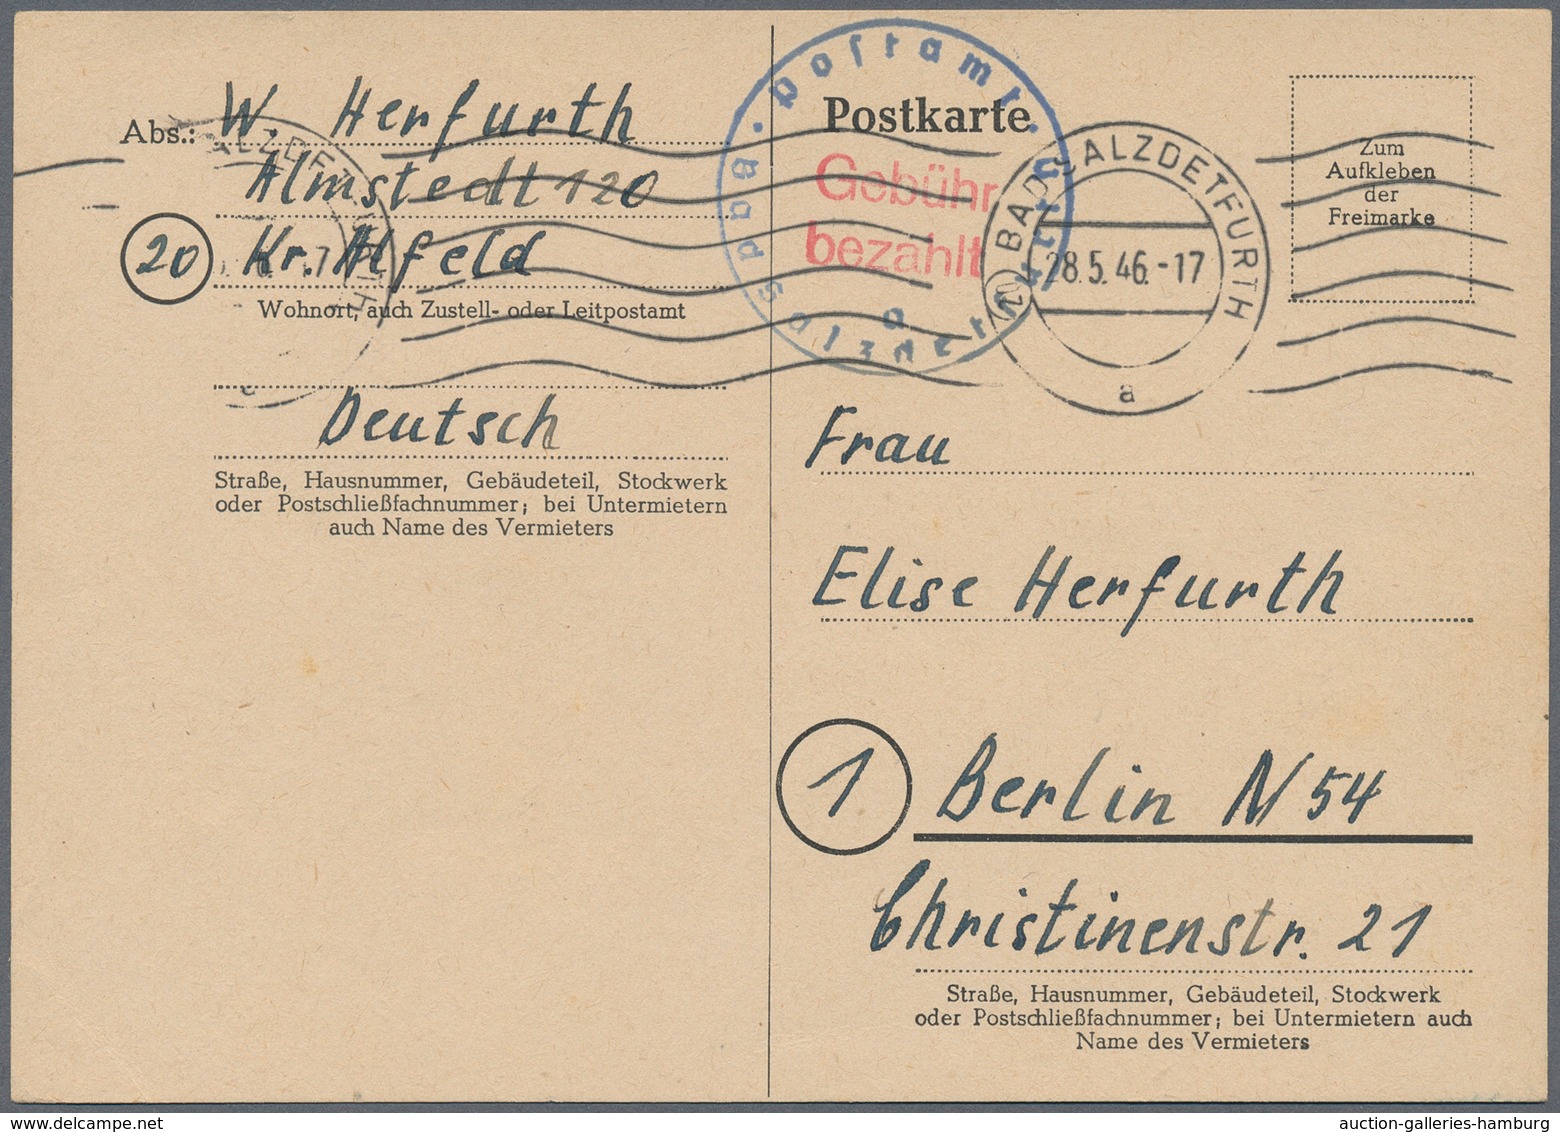 Abs.: W. Herfurth
Almstedt 120
20 Kr. Alfeld
Wohnort, auch Zustell- oder Leitpostamt
Deutsch
Straße, Hausnummer, Gebäudeteil, Stockwerk
oder Postschließfachnummer; bei Untermietern
auch Name des Vermieters
Postkarte
Gebühr
bezahlt
a
BAD SALZDETFURTH
28.5.46.-17
a
Zum
Aufkleben
der
Freimarke
Frau
Elise Herfurth
1 Berlin N 54
Christinenstr. 21
Straße, Hausnummer, Gebäudeteil, Stockwerk
oder Postschließfachnummer; bei Untermietern auch
Name des Vermieters
auction-galleries-hamburg